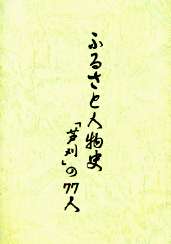 ふるさと人物史
「芦刈」の77人